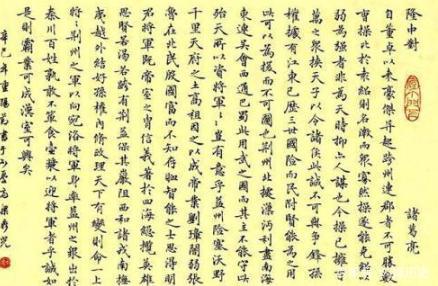 隆中对 諸葛亮
自董卓以来豪傑并起跨州連郡者不可勝數
曹操比於袁紹則名微而衆寡然操遂能克紹以
弱為強者非為天時抑亦人謀也今操已擁百
萬之衆挾天子以令諸侯此誠不可與爭鋒孫
權據有江東已歷三世國險而民附賢能為之用
此可以為援而不可圖也荊州北據漢沔利盡南海
東連吳會西通巴蜀此用武之國而其主不能守此
殆天所以資將軍將軍豈有意乎益州險塞沃野
千里天府之土高祖因之以成帝業劉璋闇弱張
魯在北民殷國富而不知存恤智能之士思得明
君將軍既帝室之胄信義著於四海總攬英雄
思賢若渴若跨有荊益保其嚴阻西和諸戎南撫
夷越外結好孫權內修政理天下有變則命一上
將將荊州之軍以向宛洛將軍身率益州之衆出於
秦川百姓孰敢不簞食壺漿以迎將軍者乎誠如
是則霸業可成漢室可興矣
辛巳年重陽書於